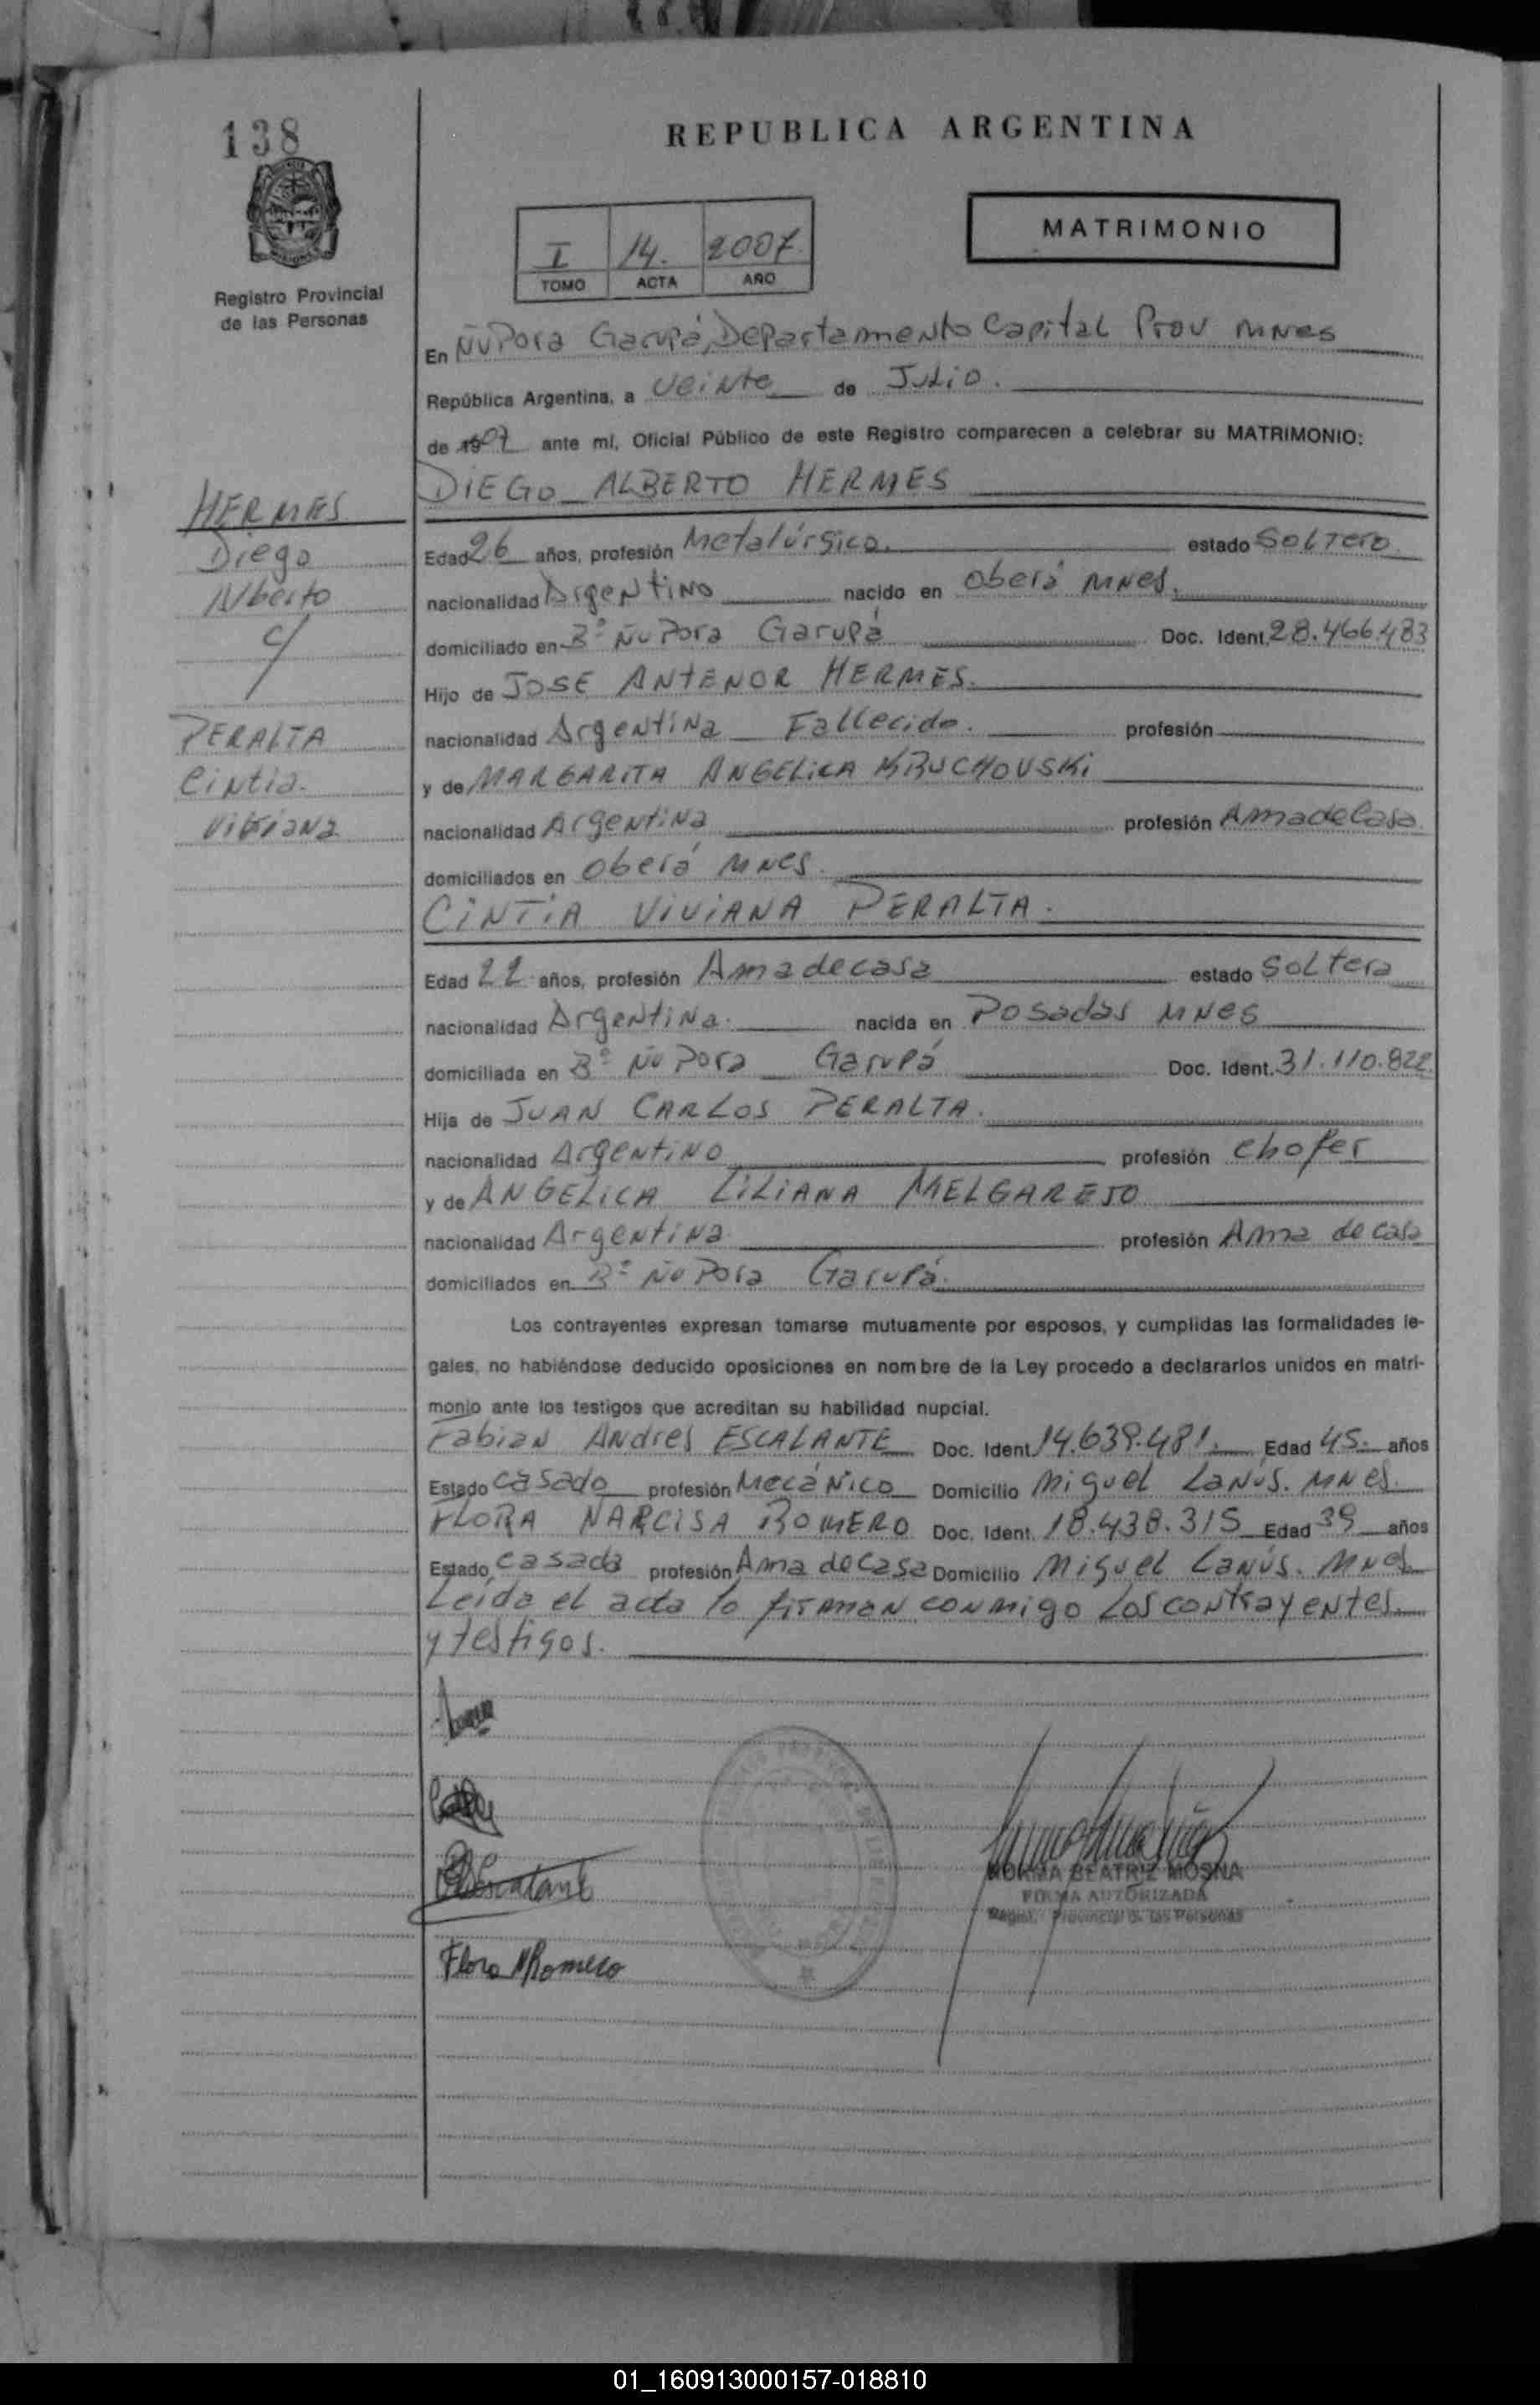 138
REPUBLICA ARGENTINA
MATRIMONIO
I 14. 2007.
TOMO ACTA AÑO
Registro Provincial
de las Personas
En ÑU Pora Garupá, Departamento Capital Prov MNes
República Argentina, a veinte de Julio.
de 1907 ante mí, Oficial Público de este Registro comparecen a celebrar su MATRIMONIO:
DIEGO ALBERTO HERMES
HERMES
Diego
Alberto
c/
PERALTA
Cintia.
Viviana
Edad 26 años, profesión Metalúrgico. estado Soltero
nacionalidad Argentino nacido en Oberá MNes.
domiciliado en Bº Ñu Pora Garupá Doc. Ident. 28.466.483
Hijo de JOSE ANTENOR HERMES.
nacionalidad Argentina Fallecido. profesión
y de MARGARITA ANGELICA KRUCHOVSKI
nacionalidad Argentina profesión Ama de Casa
domiciliados en Oberá MNes.
CINTIA VIVIANA PERALTA.
Edad 22 años, profesión Ama de casa estado Soltera
nacionalidad Argentina. nacida en Posadas MNes
domiciliada en Bº Ñu Pora Garupá Doc. Ident. 31.110.822
Hija de JUAN CARLOS PERALTA.
nacionalidad Argentino profesión chofer
y de ANGELICA LILIANA MELGAREJO
nacionalidad Argentina profesión Ama de casa
domiciliados en Bº Ñu Pora Garupá.
Los contrayentes expresan tomarse mutuamente por esposos, y cumplidas las formalidades le-
gales, no habiéndose deducido oposiciones en nombre de la Ley procedo a declararlos unidos en matri-
monio ante los testigos que acreditan su habilidad nupcial.
Fabian Andres ESCALANTE Doc. Ident. 14.639.481. Edad 45. años
Estado casado profesión Mecánico Domicilio Miguel Lanús. MNes.
FLORA NARCISA ROMERO Doc. Ident. 18.438.315 Edad 39 años
Estado casada profesión Ama de Casa Domicilio Miguel Lanús. MNes
Leída el acta la firman conmigo los contrayentes
y testigos.
Escalante
NORMA BEATRIZ MOSNA
FIRMA AUTORIZADA
Regist. Provincial de las Personas
Flora N Romero
01_160913000157-018810